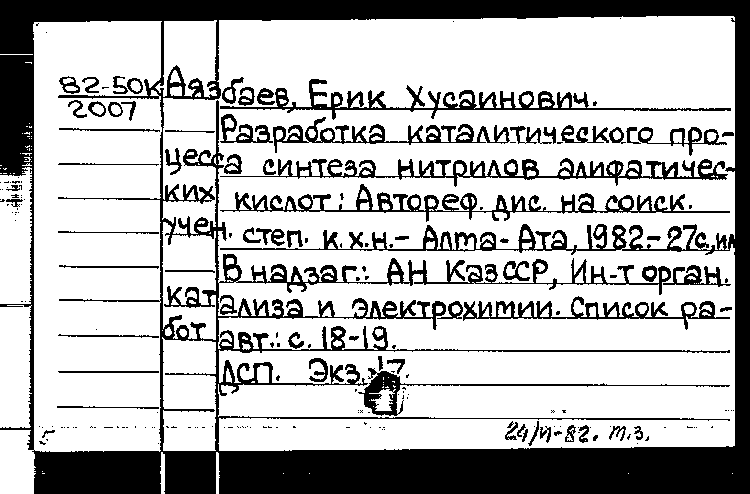 82-50К Аязбаев, Ерик Хусаинович.
2007
Разработка каталитического про-
цесса синтеза нитрилов алифатичес-
ких кислот: Автореф. дис. на соиск.
учен. степ. к.х.н.- Алма-Ата, 1982-27с., ил
В надзаг.: АН КазССР, Ин-т орган.
катализа и электрохимии. Список ра-
бот авт.: с. 18-19.
ДСП. Экз.
5
24/VI-82. т.з.